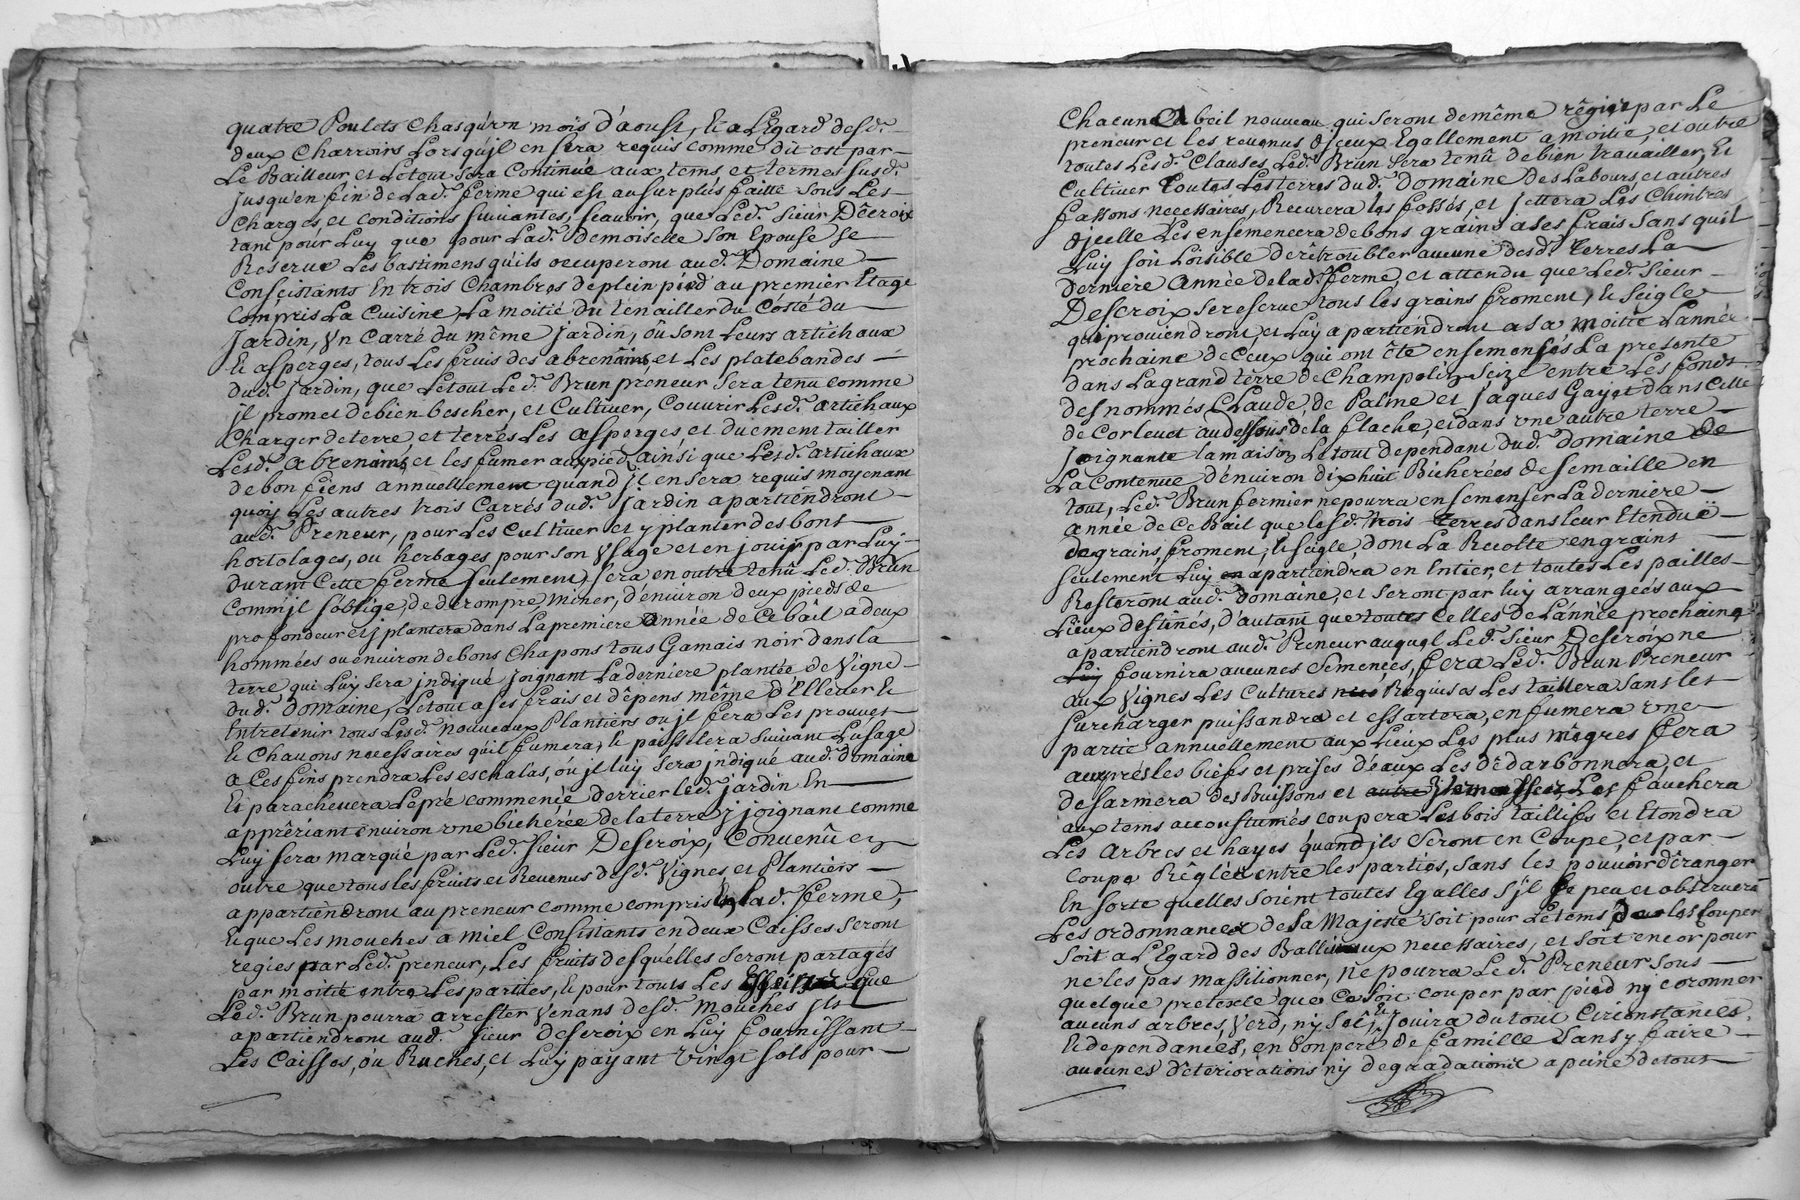 quatre Poulets Chasqu'un mois d'aoust, & a L'Egard desd.
deux Charroirs Lorsqu'jl en sera requis comme dit est par
Le Bailleur et Letout sera Continué aux tems, et termes susd.
jusqu'en fin de Lad. ferme qui est au surplus faitte sous Les
Charges, et conditions suivantes, scauoir, que Led. Sieur Déscroix
tant pour Luy que pour Lad. Demoiselle Son Epouse se
Reserue Les bastimens qu'ils occuperont aud. Domaine
Consistants En trois Chambres de plein pied au premier Etage
Compris La Cuisine, La moitié du tenailler du Costé du
jardin, Vn Carré du même jardin, oû sont Leurs artichaux
& asperges, tous Les fruis des abrenains, et Les platebandes
dud. Jardin, que Letout Led. Brun preneur Sera tenu comme
jl promet de bien bescher, et Cultiuer, Couurir Lesd. artichaux
Charger de terre, et terrés Les asperges, et duement tailler
Lesd. abrenains, et les fumer aux pied ainsi que Lesd. artichaux
de bon fiens annuellement quand jl en sera requis moyenant
quoy Les autres trois Carrés dud. Jardin apartiendront
aud. Preneur, pour Les Cultiuer et y planter des bons
hortolages, ou herbages pour son Vsage et en jouir par Luy
durant Cette ferme seulement, sera en outre tenû Led. Brun
Comm'jl s'oblige, de derompre miner, d'enuiron deux pieds de
profondeur et j plantera dans La premiere année de Ce bail a deux
hommées ou enuiron de bons Chapons tous Gamais noir dans la
terre qui Luy Sera jndiqué joignant La derniere plantée de Vigne
dud. Domaine, Letout a ses frais et dépens même d'Elleuer &
Entretenir tous Lesd. nouueaux Plantiers ou jl fera Les prouuets
& Chauons necessaires qu'il fumera, & paisselera Suiuant L'usage
a Ces fins prendra Les eschalas, oú jl luy Sera jndiqué aud. Domaine
Et paracheuera Le pré commencé derrier Led. jardin En
apprêtant enuiron vne bicherée de la terre j joignant comme
Luy sera marqué par Led. Sieur Descroix, Conuenû en
outre que tous les fruits et Reuenus desd. Vignes et Plantiers
appartiendront au preneur comme compris En Lad. ferme,
& que Les mouches a miel Consistants en deux Caisses seront
regies par Led. preneur, Les fruits desquelles seront partagés
par moitié entre Les parties, & pour touts Les que
Led. Brun pourra arrester Venans desd. mouches jls
apartiendront aud. Sieur Descroix en Luy fournissant
Les Caisses, ou Ruches, et Luy payant vingt sols pour
Chacun abeil nouueau qui seront de même régies par Le
preneur et les reuenus d'jceux Egallement a moitié, et outre
toutes Lesd. Clauses, Led. Brun Sera tenû de bien trauailler, Et
Cultiuer toutes Les terres dud. Domaine des Labours et autres
fassons necessaires, Recurera les fossés, et jettera Les Chintres
djcelle Les ensemencera de bons grains a ses frais sans quil
Luy soit Loisible de rêtroubler aucune desd. terres La
derniere année de lad. ferme, et attendu que Led. Sieur
Descroix se reserue tous les grains froment, & seigle
qui prouiendront, et Luy apartiendront a sa moitié Lannée
prochaine de Ceux qui ont êté ensemensés La presente
dans La grand terre de Champolin Seize entre Les fonds
des nommés Claude, de Palme et Jaques Gayot dans Celle
de Corleuet au dessous de la flache, et dans vne autre terre
Joignante la maison Letout dependant dud. Domaine de
La Contenue d'enuiron dix huit Bicherées de semaille en
tout, Led. Brun fermier ne pourra ensemenser La derniere
année de Ce Bail que lesd. trois terres dans leur Etendue
de grains, froment, & seigle, dont La Recolte en grains
seulement Luy apartiendra en Entier, et toutes Les pailles
Resteront aud. Domaine, et seront par luy arrangées aux
Lieux destinés, d'autant que toutes Celles de L'année prochaine
apartiendront aud. Preneur auquel Led. Sieur Descroix ne
Luy fournira aucunes semences, fera Led. Brun Preneur
aux vignes Les Cultures Requises Les taillera sans les
surcharger puissandra et essartera, en fumera vne
partie annuellement aux Lieux Les plus megres fera
aux prés les biefs et prises d'eaux Les dédarbonnera, et
desarmera des Buissons et Les fauchera
aux tems accoustumés coupera Les bois taillifs et Etondra
Les arbres et hayes quand jls Seront en Coupe, et par
coupe Réglée entre les parties, sans les pouuoir déranger
En sorte quelles soient toutes Egalles s'jl se peu et obseruera
Les ordonnances de Sa Majesté soit pour Le tems Les Couper
soit a L'Egard des Balliueaux necessaires, et soit encor pour
ne les pas massilionner, ne pourra Led. Preneur sous
quelque pretexte que Ce soit couper par pied ny coronner
aucuns arbres, Verd, ny Sec, Jouira du tout Circonstances
& dependances, en bon pere de famille sans y faire
aucunes déteriorations ny degradations a peine de tous